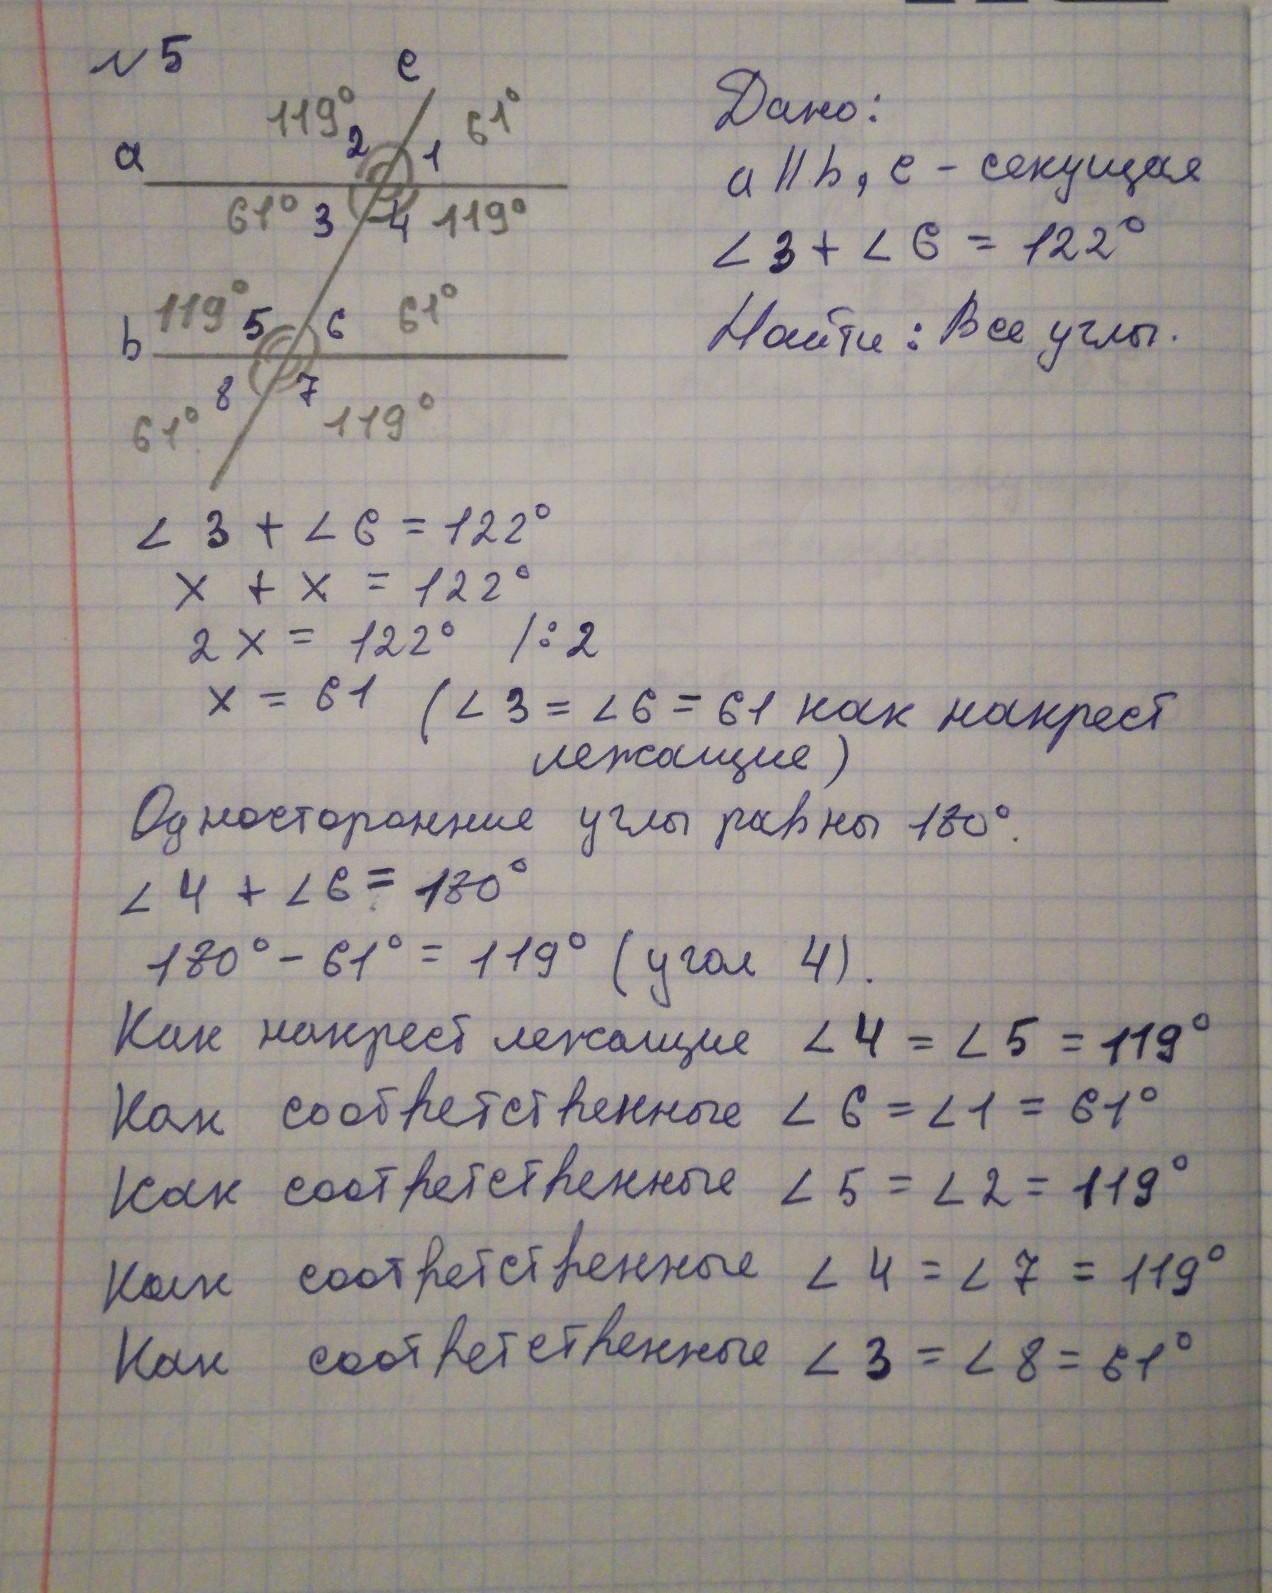 №5
c
119° 2 1 61°
a
61° 3 4 119°
b 119° 5 6 61°
8 7
61° 119°
Дано:
a || b, c - секущая
∠3 + ∠6 = 122°
Найти: Все углы.
∠3 + ∠6 = 122°
x + x = 122°
2x = 122° /:2
x = 61 (∠3 = ∠6 = 61 как накрест
лежащие)
Односторонние углы равны 180°.
∠4 + ∠6 = 180°
180° - 61° = 119° (угол 4).
Как накрест лежащие ∠4 = ∠5 = 119°
Как соответственные ∠6 = ∠1 = 61°
Как соответственные ∠5 = ∠2 = 119°
Как соответственные ∠4 = ∠7 = 119°
Как соответственные ∠3 = ∠8 = 61°